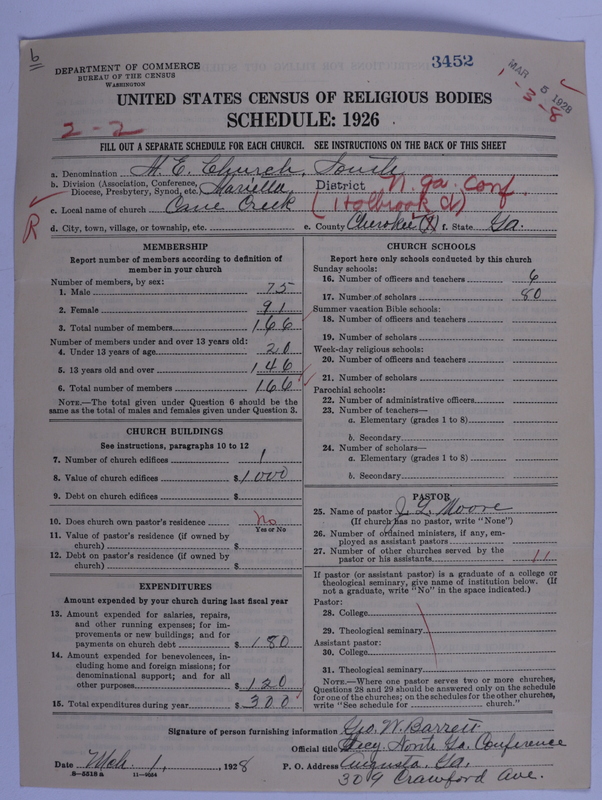 b
3452
MAR 5 1928
1-3-8
DEPARTMENT OF COMMERCE
BUREAU OF THE CENSUS
WASHINGTON
UNITED STATES CENSUS OF RELIGIOUS BODIES
SCHEDULE: 1926
2-2
FILL OUT A SEPARATE SCHEDULE FOR EACH CHURCH. SEE INSTRUCTIONS ON THE BACK OF THIS SHEET
a. Denomination M. E. Church, South
b. Division (Association, Conference, Diocese, Presbytery, Synod, etc.) Marietta District N. Ga. Conf.
c. Local name of church Cane Creek (Holbrook Ct)
R
d. City, town, village, or township, etc. e. County Cherokee (X) f. State Ga.
MEMBERSHIP
Report number of members according to definition of
member in your church
Number of members, by sex:
1. Male 75
2. Female 91
3. Total number of members 166
Number of members under and over 13 years old:
4. Under 13 years of age 20
5. 13 years old and over 146
6. Total number of members 166
NOTE.—The total given under Question 6 should be the
same as the total of males and females given under Question 3.
CHURCH BUILDINGS
See instructions, paragraphs 10 to 12
7. Number of church edifices 1
8. Value of church edifices $1000
9. Debt on church edifices $
10. Does church own pastor's residence No
Yes or No
11. Value of pastor's residence (if owned by
church) $
12. Debt on pastor's residence (if owned by
church) $
EXPENDITURES
Amount expended by your church during last fiscal year
13. Amount expended for salaries, repairs,
and other running expenses; for im-
provements or new buildings; and for
payments on church debt $180
14. Amount expended for benevolences, in-
cluding home and foreign missions; for
denominational support; and for all
other purposes $120
15. Total expenditures during year $300
CHURCH SCHOOLS
Report here only schools conducted by this church
Sunday schools:
16. Number of officers and teachers 6
17. Number of scholars 80
Summer vacation Bible schools:
18. Number of officers and teachers
19. Number of scholars
Week-day religious schools:
20. Number of officers and teachers
21. Number of scholars
Parochial schools:
22. Number of administrative officers
23. Number of teachers—
a. Elementary (grades 1 to 8)
b. Secondary
24. Number of scholars—
a. Elementary (grades 1 to 8)
b. Secondary
PASTOR
25. Name of pastor J. L. Moore
(If church has no pastor, write "None")
26. Number of ordained ministers, if any, em-
ployed as assistant pastors
27. Number of other churches served by the
pastor or his assistants 11
If pastor (or assistant pastor) is a graduate of a college or
theological seminary, give name of institution below. (If
not a graduate, write "No" in the space indicated.)
Pastor:
28. College
29. Theological seminary
Assistant pastor:
30. College
31. Theological seminary
NOTE.—Where one pastor serves two or more churches,
Questions 28 and 29 should be answered only on the schedule
for one of the churches; on the schedules for the other churches,
write "See schedule for church."
Signature of person furnishing information Geo. W. Barrett
Official title Secy. North Ga. Conference
Date Mch. 1, 1928 P. O. Address Augusta, Ga.
8-5518 a 11-9554 309 Crawford Ave.